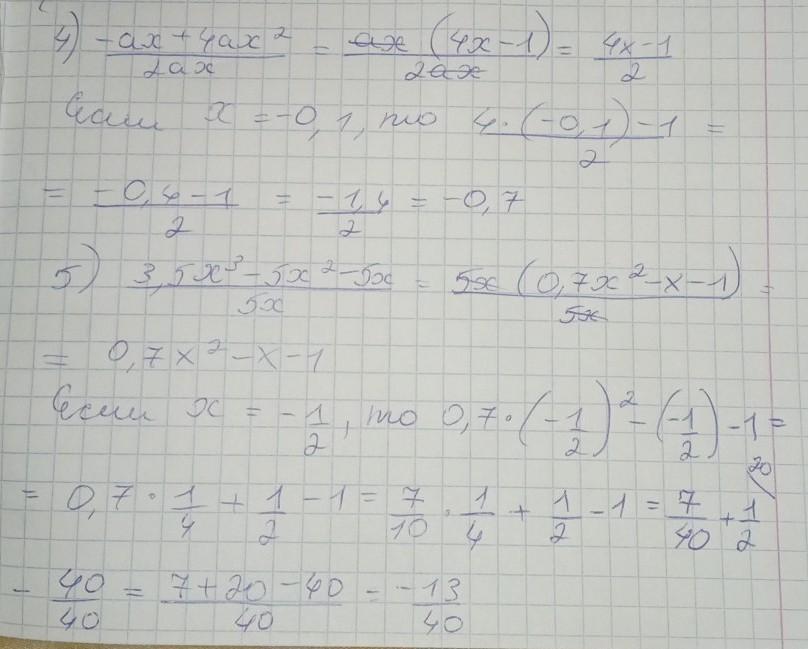 4) (-ax + 4ax²)/(2ax) = (ax (4x - 1))/(2ax) = (4x - 1)/2
Если x = -0,1, то (4·(-0,1) - 1)/2 =
= (-0,4 - 1)/2 = (-1,4)/2 = -0,7
5) (3,5x³ - 5x² - 5x)/(5x) = (5x (0,7x² - x - 1))/(5x) =
= 0,7x² - x - 1
Если x = -1/2, то 0,7·(-1/2)² - (-1/2) - 1 =
= 0,7 · 1/4 + 1/2 - 1 = 7/10 · 1/4 + 1/2 - 1 = 7/40 + 20/ 1/2
- 40/40 = (7 + 20 - 40)/40 = -13/40